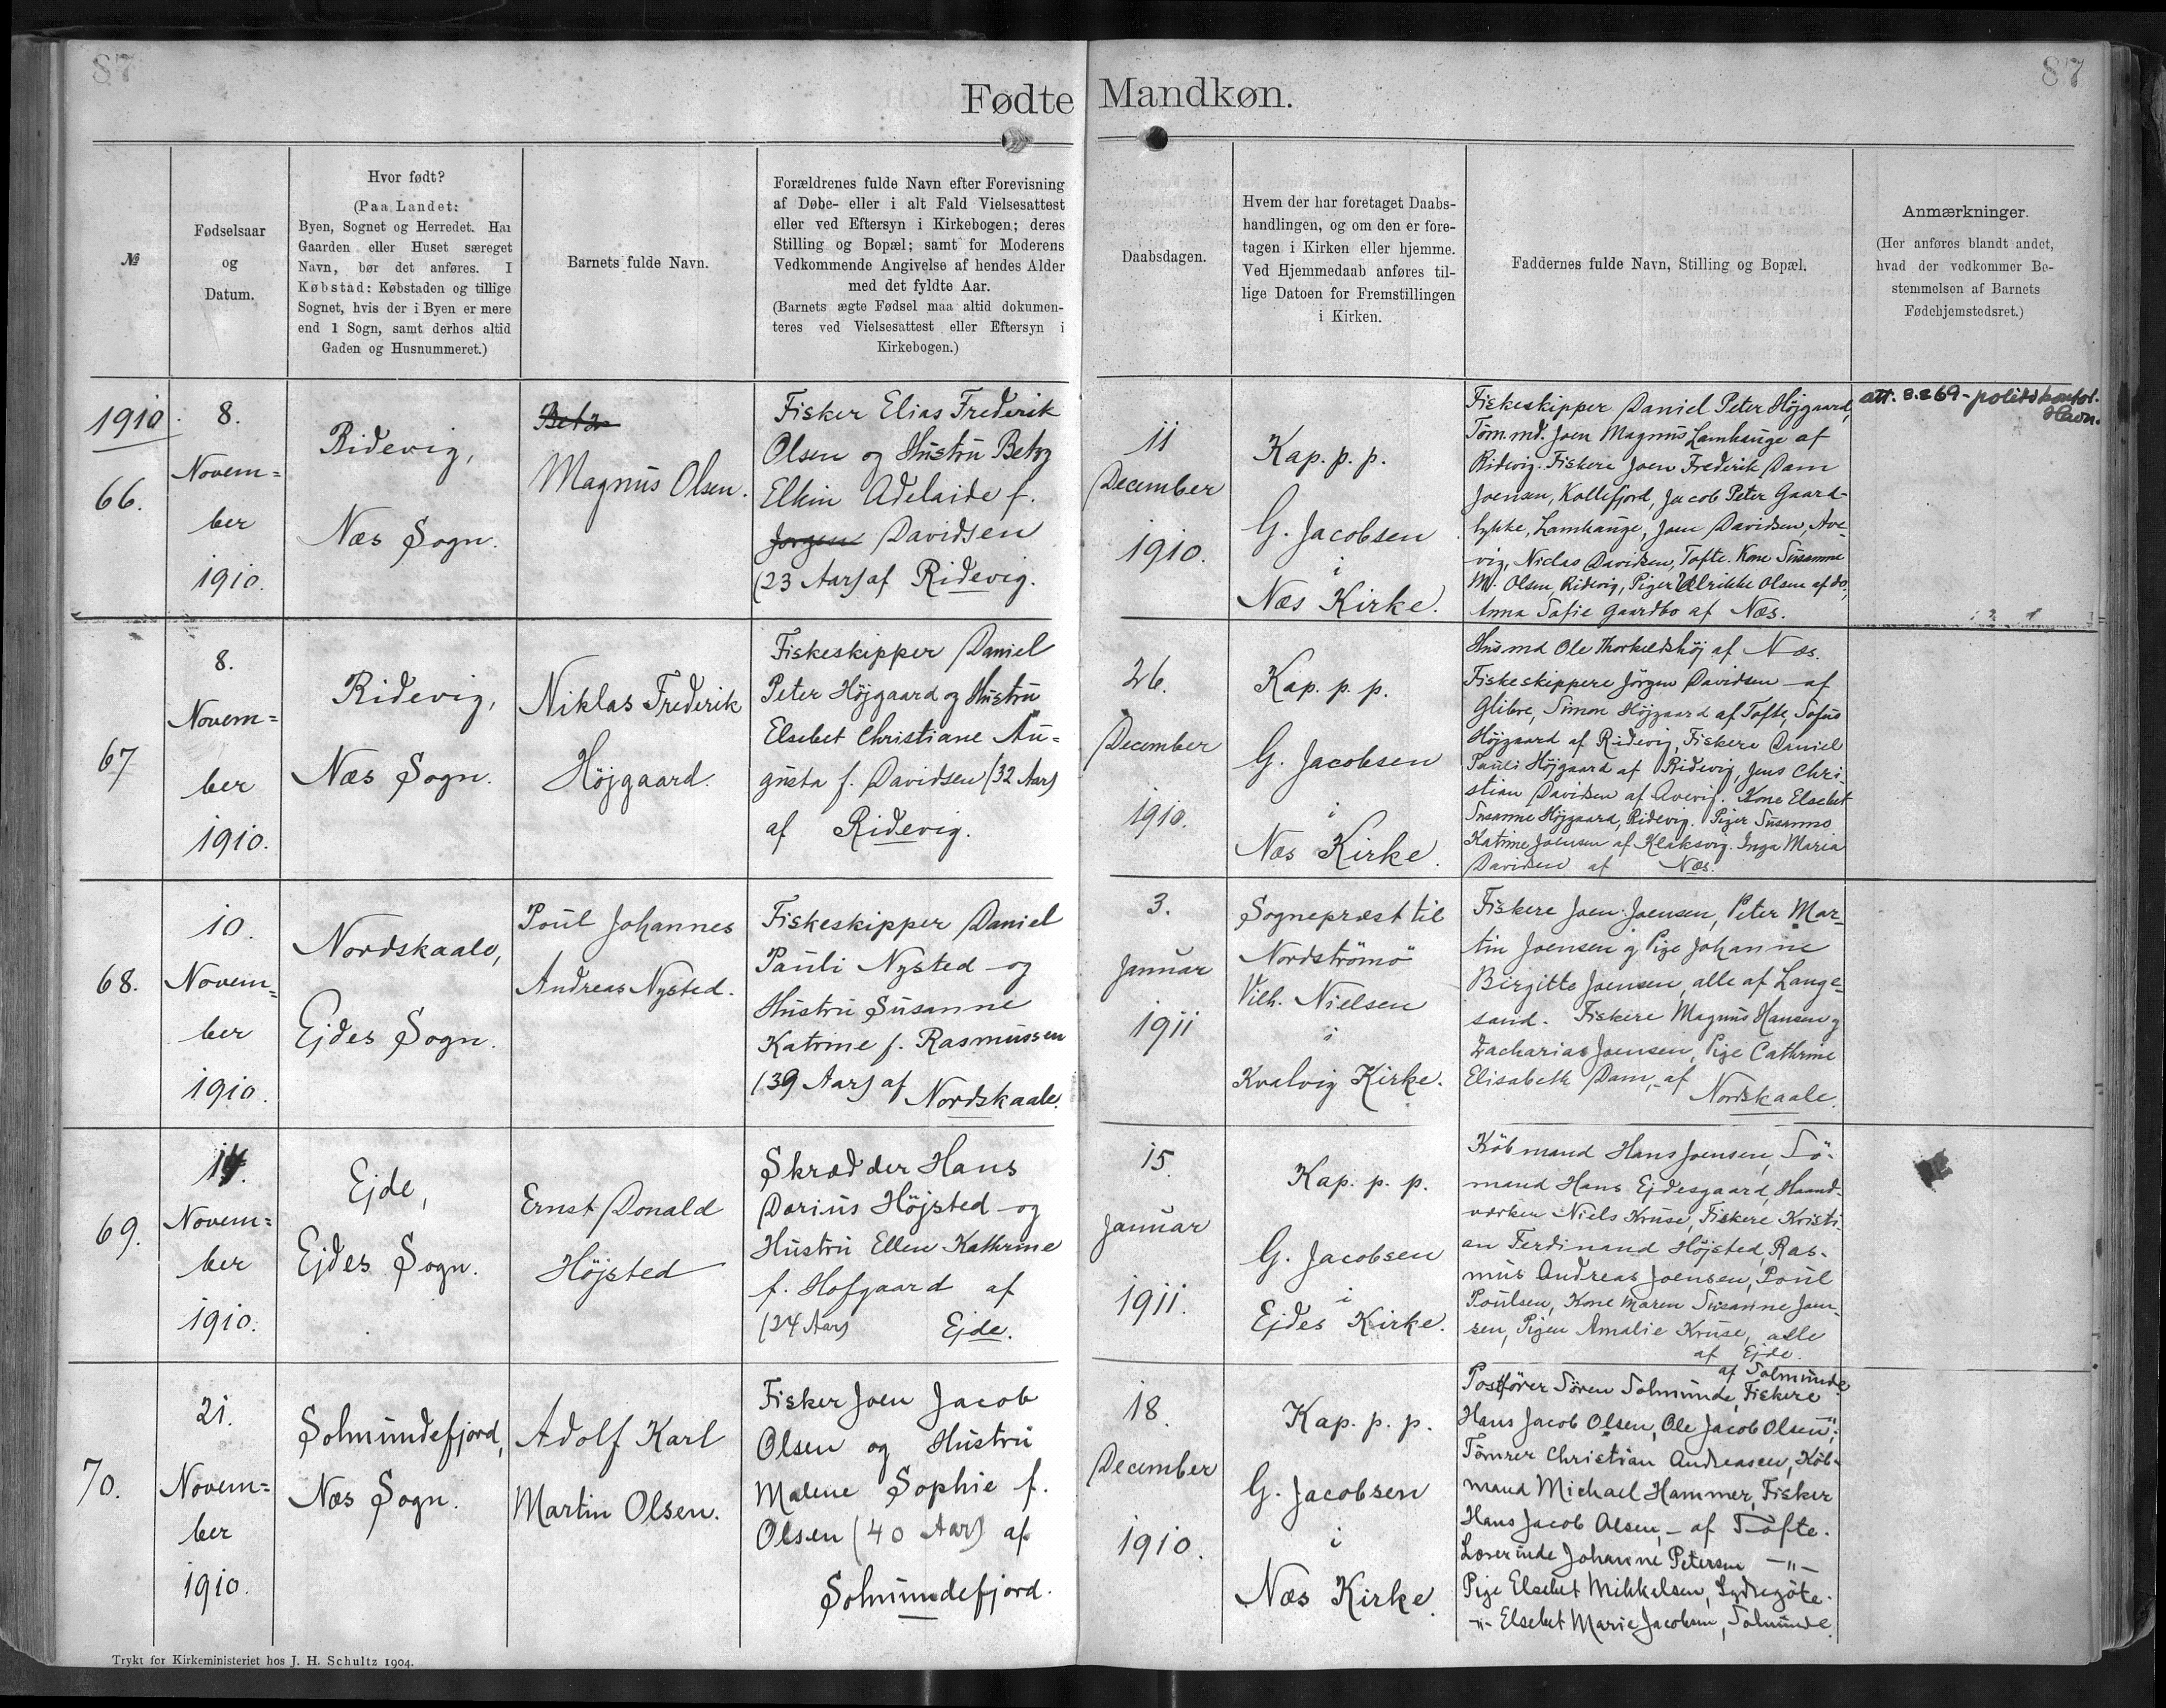 87
87
Fødte Mandkøn.
№
Fødselsaar
og
Datum.
Hvor født?
(Paa Landet:
Byen, Sognet og Herredet. Har
Gaarden eller Huset særeget
Navn, bør det anføres. I
Købstad: Købstaden og tillige
Sognet, hvis der i Byen er mere
end 1 Sogn, samt derhos altid
Gaden og Husnummeret.)
Barnets fulde Navn.
Forældrenes fulde Navn efter Forevisning
af Døbe- eller i alt Fald Vielsesattest
eller ved Eftersyn i Kirkebogen; deres
Stilling og Bopæl; samt for Moderens
Vedkommende Angivelse af hendes Alder
med det fyldte Aar.
(Barnets ægte Fødsel maa altid dokumen-
teres ved Vielsesattest eller Eftersyn i
Kirkebogen.)
Daabsdagen.
Hvem der har foretaget Daabs-
handlingen, og om den er fore-
tagen i Kirken eller hjemme.
Ved Hjemmedaab anføres til-
lige Datoen for Fremstillingen
i Kirken.
Faddernes fulde Navn, Stilling og Bopæl.
Anmærkninger.
(Her anføres blandt andet,
hvad der vedkommer Be-
stemmelsen af Barnets
Fødehjemstedsret.)
1910
66.
8.
Novem=
ber
1910.
Ridevig,
Næs Sogn.
Magnus Olsen.
Fisker Elias Frederik
Olsen og Hustru Betzy
Elkin Adelaide f.
Jørgen Davidsen
(23 Aar) af Ridevig.
11
December
1910.
Kap. p. p.
G. Jacobsen
i
Næs Kirke.
Fiskeskipper Daniel Peter Højgaard,
Tømmd. Joen Magnus Lamhauge af
Ridevig. Fiskere Joen Frederik Dam
Joensen, Kollefjord, Jacob Peter Gaard-
lykke, Lamhauge, Joen Davidsen, Ave-
vig, Niclas Davidsen, Tofte. Kone Susanne
M. Olsen, Ridevig, Piger Ulrikke Olsen af do,
Anna Sofie Gaardbo af Næs.
att. 8.8 69 - politikontor.
Havn.
67
8.
Novem=
ber
1910.
Ridevig,
Næs Sogn.
Niklas Frederik
Højgaard.
Fiskeskipper Daniel
Peter Højgaard og Hustru
Elsebet Christiane Au=
gusta f. Davidsen (32 Aar)
af Ridevig.
26.
December
1910.
Kap. p. p.
G. Jacobsen
i
Næs Kirke.
Husmd Ole Thorkildshøj af Næs.
Fiskeskippere Jørgen Davidsen af
Glibre, Simon Højgaard af Tofte, Sofus
Højgaard af Ridevig, Fiskere Daniel
Pauli Højgaard af Ridevig, Jens Chri-
stian Davidsen af Avevig. Kone Elsebet
Susanne Højgaard, Ridevig. Piger Susanne
Katrine Joensen af Klaksvig. Inga Maria
Davidsen af Næs.
68.
10.
Novem=
ber
1910.
Nordskaale,
Ejdes Sogn.
Poul Johannes
Andreas Nysted.
Fiskeskipper Daniel
Pauli Nysted og
Hustru Susanne
Katrine f. Rasmussen
(39 Aar) af Nordskaale.
3.
Januar
1911
Sognepræst til
Nordströmö
Vilh. Nielsen
i
Kvalvig Kirke.
Fiskere Joen Joensen, Peter Mar-
tin Joensen og Pige Johanne
Birgitte Joensen, alle af Lange-
sand. Fiskere Magnus Hansen og
Zacharias Joensen, Pige Cathrine
Elisabeth Dam, af Nordskaale.
69.
14.
Novem=
ber
1910.
Ejde,
Ejdes Sogn.
Ernst Donald
Højsted
Skrædder Hans
Darius Højsted og
Hustru Ellen Kathrine
f. Hofgaard af
(24 Aar) Ejde.
15.
Januar
1911.
Kap. p. p.
G. Jacobsen
i
Ejdes Kirke.
Købmand Hans Joensen, Sö-
mand Hans Ejdesgaard, Haand-
værker Niels Kruse, Fiskere Kristi-
an Ferdinand Højsted, Ras-
mus Andreas Joensen, Poul
Poulsen, Kone Maren Susanne Joen-
sen, Pigen Amalie Kruse, alle
af Ejde.
70.
21.
Novem=
ber
1910.
Solmundefjord,
Næs Sogn.
Adolf Karl
Martin Olsen.
Fisker Joen Jacob
Olsen og Hustru
Malene Sophie f.
Olsen (40 Aar) af
Solmundefjord.
18.
December
1910.
Kap. p. p.
G. Jacobsen
i
Næs Kirke.
af Solmunde
Postfører Sören Solmunde, Fiskere
Hans Jacob Olsen, Ole Jacob Olsen ";
Tömrer Christian Andreasen, Köb-
mand Michael Hammer, Fisker
Hans Jacob Olsen, - af Tofte.
Lærerinde Johanne Petersen -"-
Pige Elsebet Mikkelsen, Sydregöte.
-"- Elsebet Marie Jacobsen, Solmunde.
Trykt for Kirkeministeriet hos J. H. Schultz 1904.